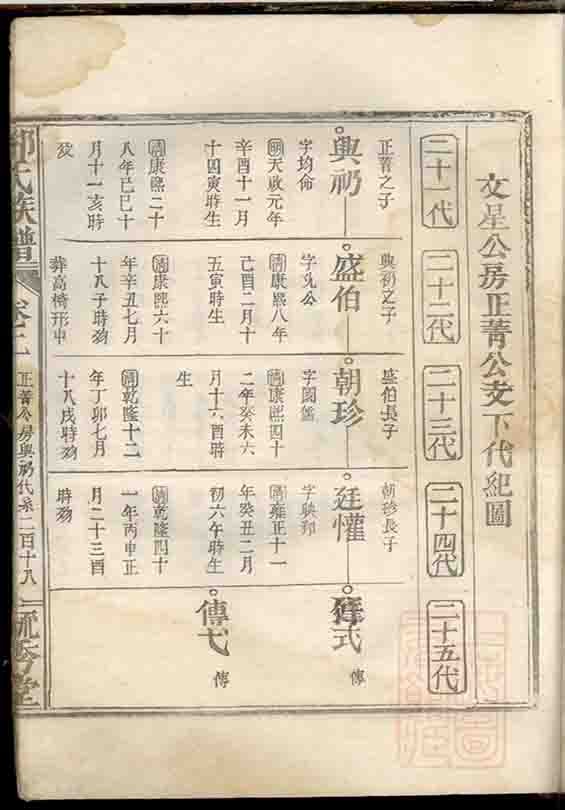 文星公房正菁公支下代紀圖
二十一代
二十二代
二十三代
二十四代
二十五代
正菁之子
興礽
字均命
明天啟元年
辛酉十一月
十四寅時生
清康熙二十
八年己巳十
月十一亥時
歿
興礽之子
盛伯
清康熙八年
己酉二月十
五寅時生
清康熙六十
年辛丑七月
十八子時歿
葬高椅形中
盛伯長子
朝珍
清康熙四十
二年癸未六
月十六酉時
生
清乾隆十二
年丁卯七月
十八戌時歿
朝珍長子
廷懽
清雍正十一
年癸丑二月
初六午時生
清乾隆四十
一年丙申正
月二十三酉
時歿
傳
傳弋
傳
氏族譜
正菁公房興礽代系二百十八